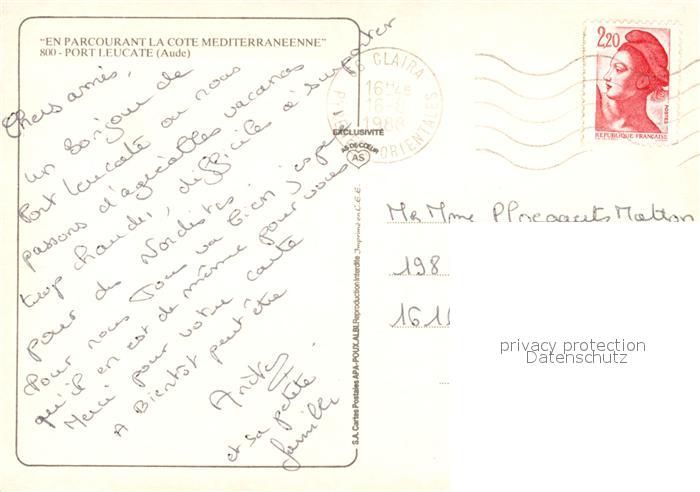 "EN PARCOURANT LA COTE MEDITERRANEENNE"
800 - PORT LEUCATE (Aude)
Chers amis,
un bonjour de
Port Leucate ou nous
passons d'agréables vacances
trop chaudes, difficiles à supporter
pour des Nordistes
Pour nous Tous va bien, j'espère
qu'il en est de même pour vous
Merci pour votre carte
A Bientot peut être
André
et sa petite
famille
66 CLAIRA
16H45
1988
PYRENEES ORIENTALES
EXCLUSIVITÉ
AS DE CŒUR
AS
S.A. Cartes Postales APA-POUX, ALBI. Reproduction Interdite Imprimé en C.E.E.
2,20
REPUBLIQUE FRANÇAISE
POSTES
Mr Mme
198
161
privacy protection
Datenschutz